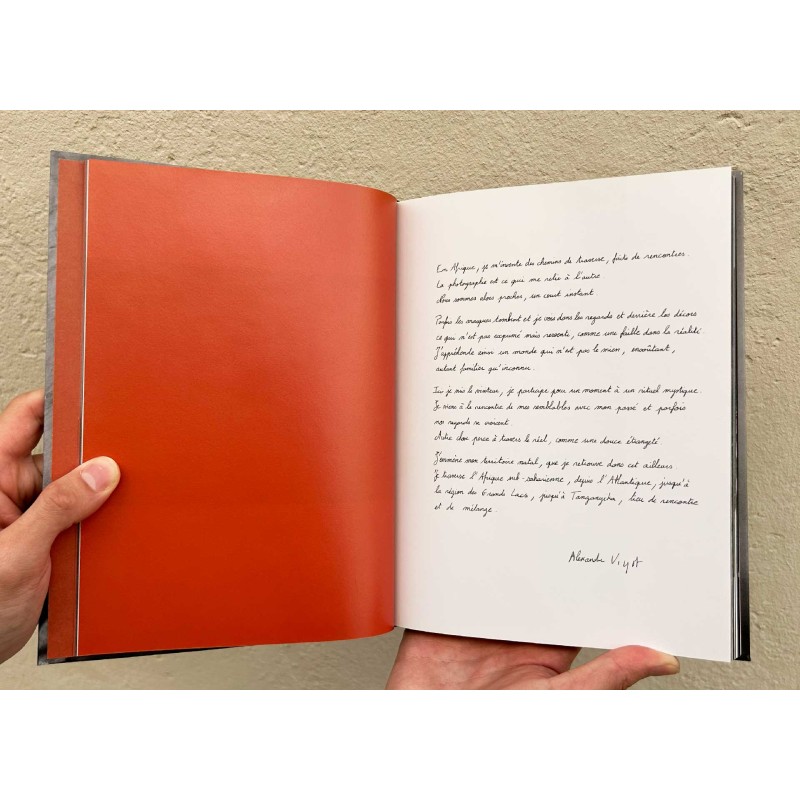 En Afrique, je m'invente des chemins de traverse, faits de rencontres.
La photographie est ce qui me relie à l'autre
Nous sommes alors proches, un court instant
Parfois les masques tombent et je vois dans les regards et derrière les décors
ce qui n'est pas exprimé mais ressenti, comme une faille dans la réalité.
J'appréhende ainsi un monde qui n'est pas le mien, envoûtant,
autant familier qu'inconnu.
Ici je suis le visiteur, je participe pour un moment à un rituel mystique.
Je viens à la rencontre de mes semblables avec mon passé et parfois
nos regards se croisent
Autre chose perce à travers le réel, comme une douce étrangeté.
J'emmène mon territoire natal, que je retrouve dans cet ailleurs
Je traverse l'Afrique sub-saharienne, depuis l'Atlantique, jusqu'à
la région des Grands Lacs, jusqu'à Tanganyika, lieu de rencontre
et de mélange.
Alexandre